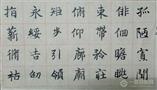 指薪脩祜
永綏吉劭
矩步引領
俯仰廊廟
束帶矜莊
徘徊瞻眺
孤陋寡聞